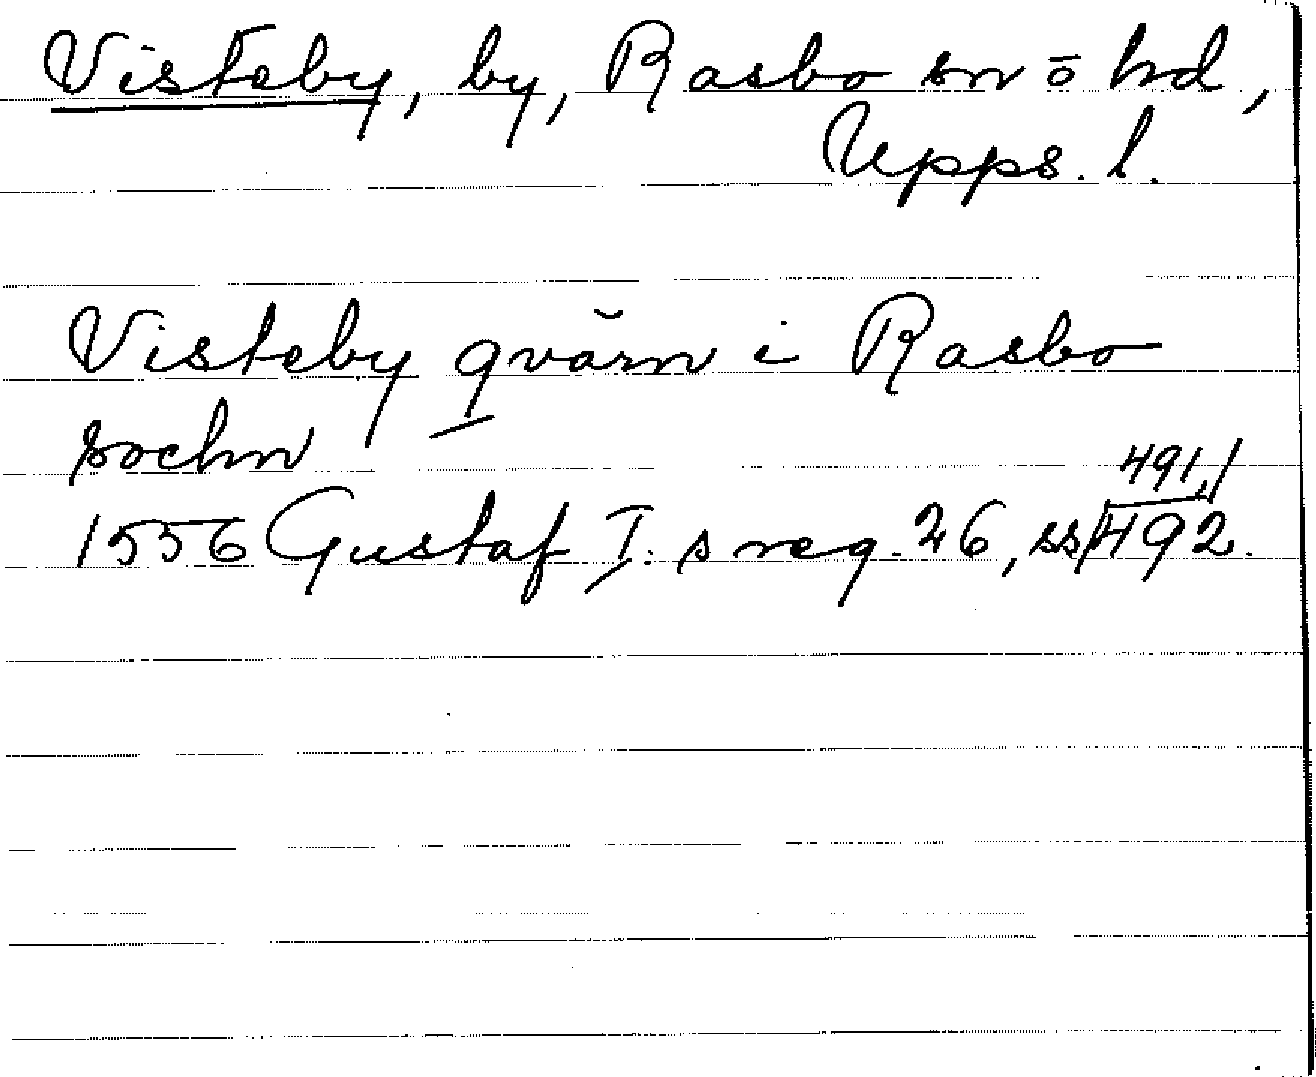 Visteby, by, Rasbo sn o hd,
Upps. l.
Visteby qvărn i Rasbo
sochn
491,
1556 Gustaf I:s reg. 26, ss 492.